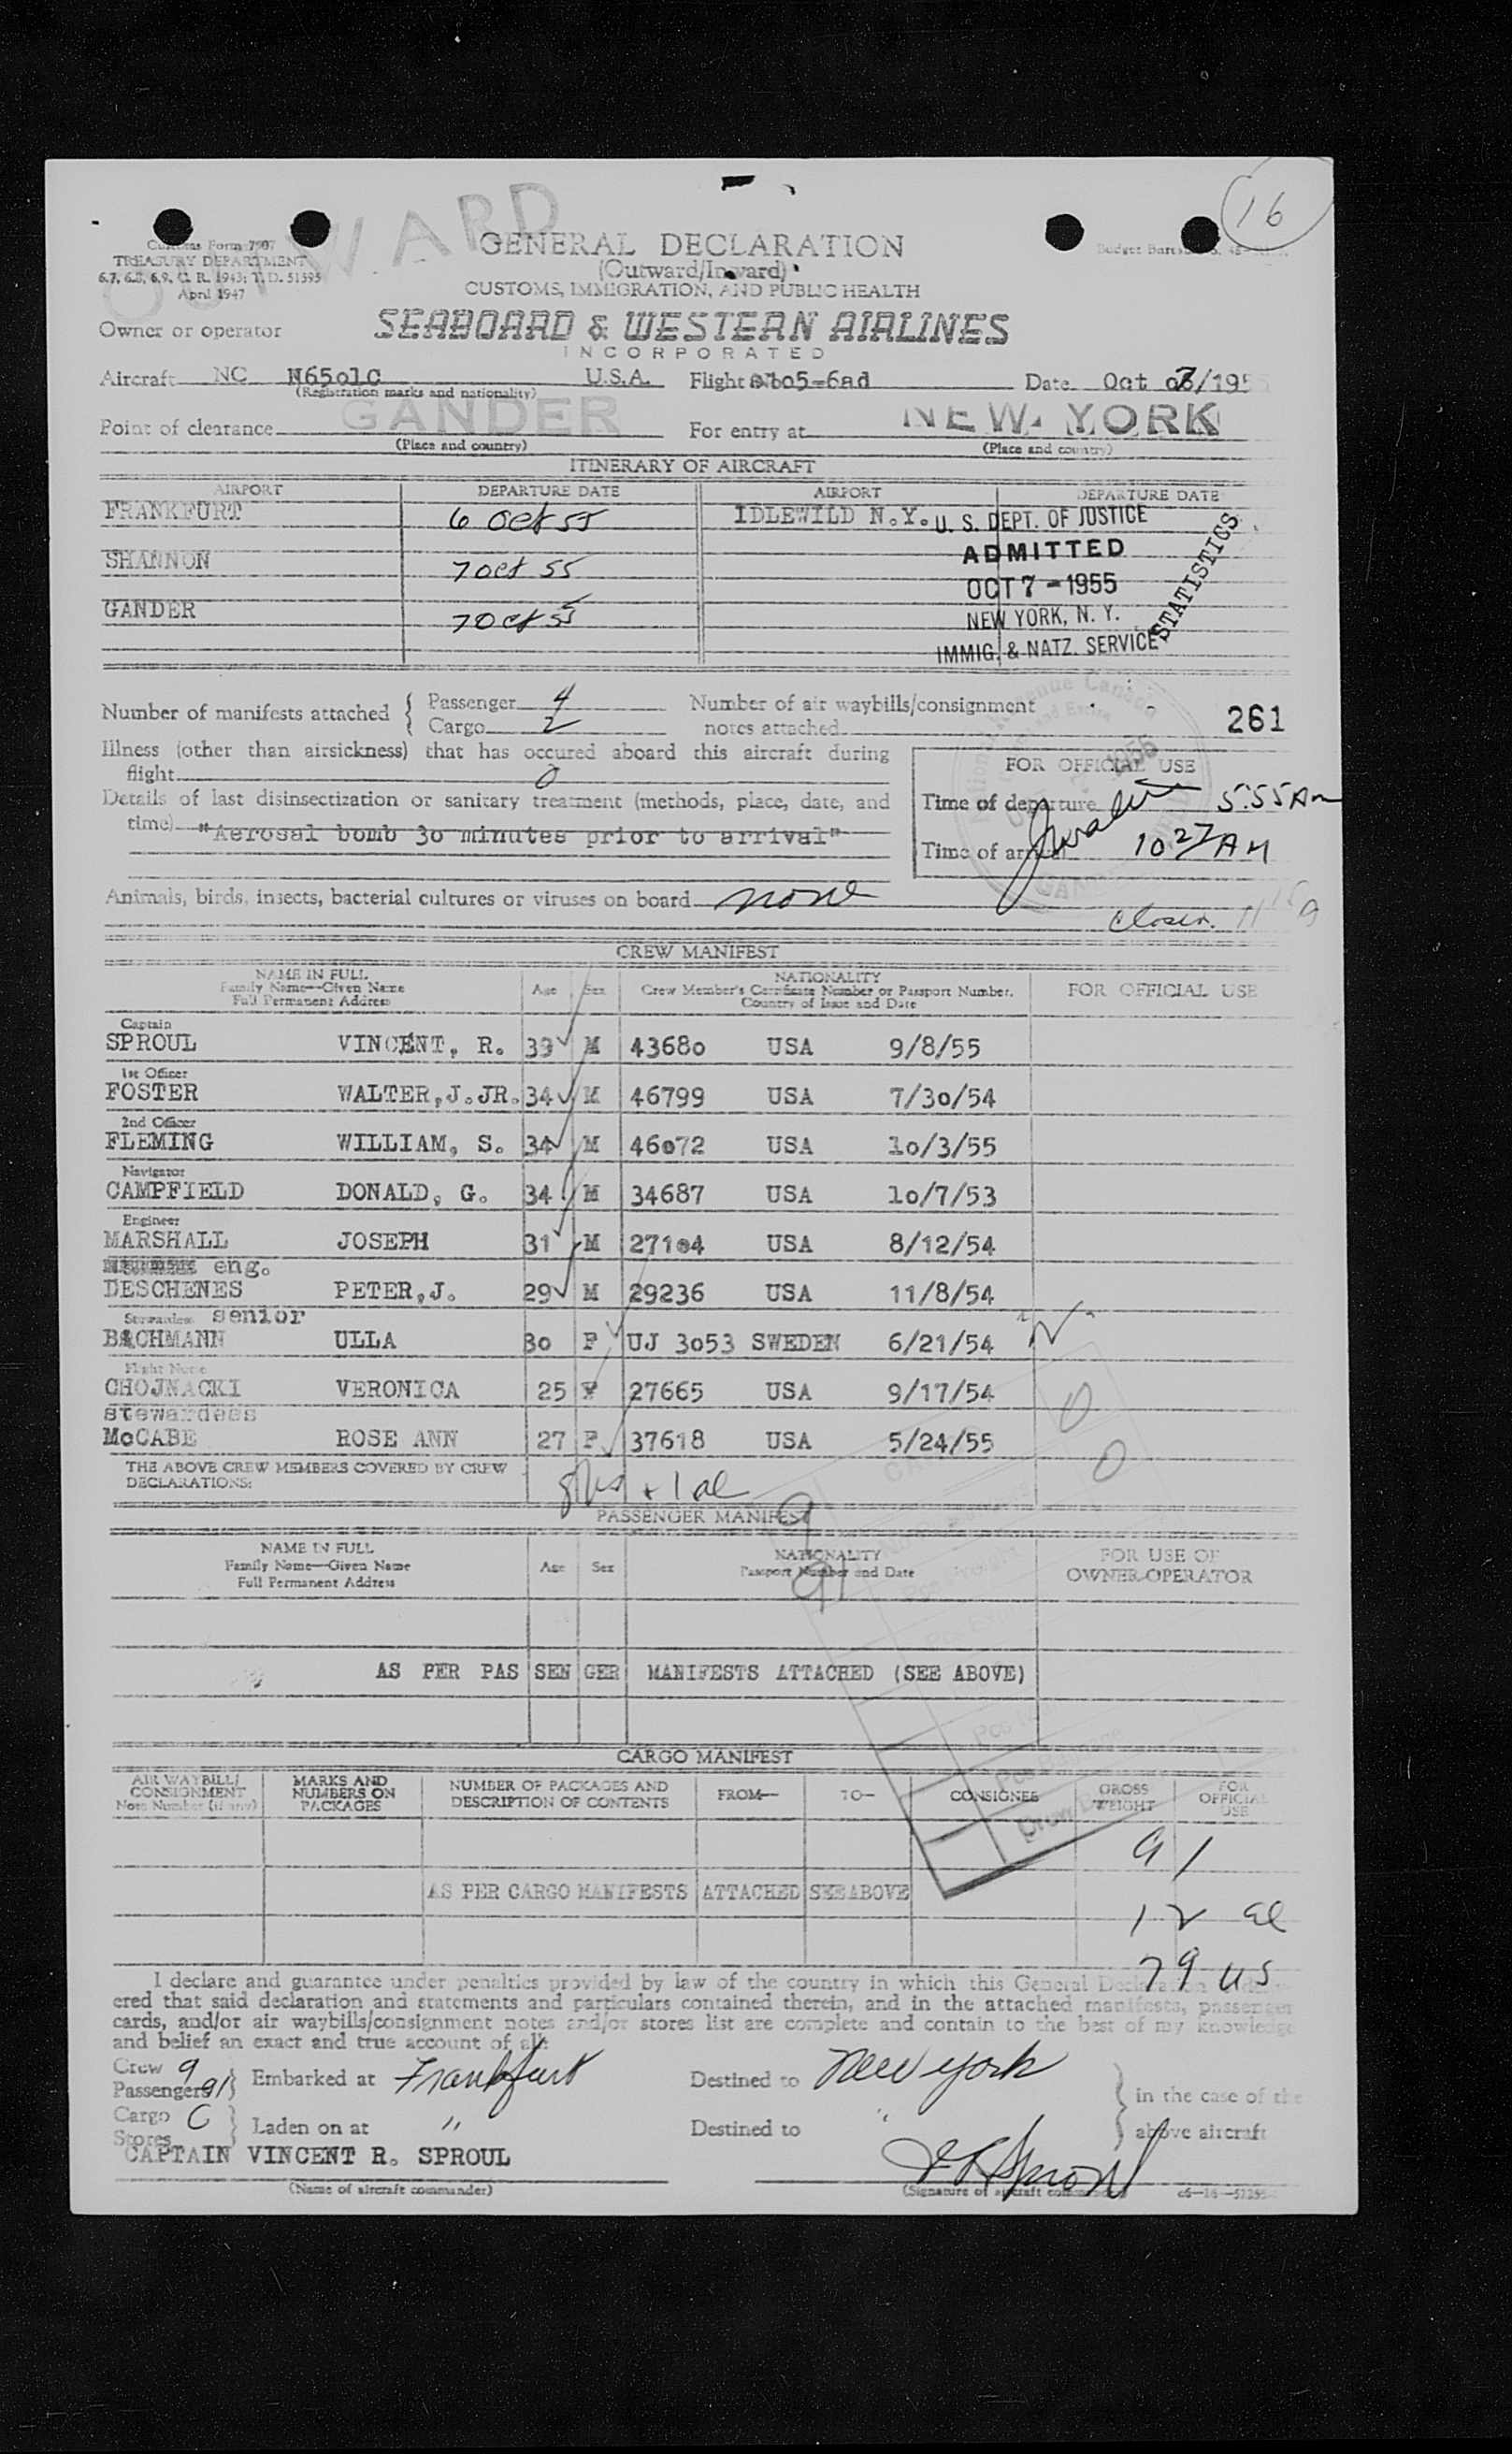 16
OUTWARD
Customs Form 7507
TREASURY DEPARTMENT
6.7, 6.8, 6.9, C. R. 1943; T. D. 51595
April 1947
GENERAL DECLARATION
(Outward/Inward)
CUSTOMS, IMMIGRATION, AND PUBLIC HEALTH
Owner or operator SEABOARD & WESTERN AIRLINES
INCORPORATED
Aircraft NC N6501C U.S.A. Flight Date Oct
(Registration marks and nationality)
Point of clearance GANDER For entry at NEW YORK
(Place and country) (Place and country)
ITINERARY OF AIRCRAFT
AIRPORT DEPARTURE DATE AIRPORT DEPARTURE DATE
FRANKFURT 6 Oct 55 IDLEWILD N.Y.
SHANNON 7 Oct 55
GANDER 7 Oct 55
U. S. DEPT. OF JUSTICE
ADMITTED
OCT 7 - 1955
NEW YORK, N. Y.
IMMIG. & NATZ. SERVICE
STATISTICS
Number of manifests attached { Passenger 4 Number of air waybills/consignment
Cargo 2 notes attached
261
Illness (other than airsickness) that has occured aboard this aircraft during
flight 0
Details of last disinsectization or sanitary treatment (methods, place, date, and
time) "Aerosal bomb 30 minutes prior to arrival"
FOR OFFICIAL USE
Time of departure 5:55 Am
Time of arrival 10 27 AM
Animals, birds, insects, bacterial cultures or viruses on board none
CREW MANIFEST
NAME IN FULL
Family Name—Given Name
Full Permanent Address
Age Sex
NATIONALITY
Crew Member's Certificate Number or Passport Number,
Country of Issue and Date
FOR OFFICIAL USE
Captain
SPROUL VINCENT, R. 39 M 43680 USA 9/8/55
1st Officer
FOSTER WALTER,J.JR. 34 M 46799 USA 7/30/54
2nd Officer
FLEMING WILLIAM, S. 34 M 46072 USA 10/3/55
Navigator
CAMPFIELD DONALD, G. 34 M 34687 USA 10/7/53
Engineer
MARSHALL JOSEPH 31 M 27104 USA 8/12/54
eng.
DESCHENES PETER,J. 29 M 29236 USA 11/8/54
Stewardess senior
BACHMANN ULLA 30 F UJ 3053 SWEDEN 6/21/54
Flight Nurse
CHOJNACKI VERONICA 25 F 27665 USA 9/17/54
stewardess
McCABE ROSE ANN 27 F 37618 USA 5/24/55
THE ABOVE CREW MEMBERS COVERED BY CREW
DECLARATIONS: 8 us + 1 al
PASSENGER MANIFEST
9
91
NAME IN FULL
Family Name—Given Name
Full Permanent Address
Age Sex
NATIONALITY
Passport Number and Date
FOR USE OF
OWNER-OPERATOR
AS PER PAS SEN GER MANIFESTS ATTACHED (SEE ABOVE)
CARGO MANIFEST
AIR WAYBILL/
CONSIGNMENT
Note Number (if any)
MARKS AND
NUMBERS ON
PACKAGES
NUMBER OF PACKAGES AND
DESCRIPTION OF CONTENTS
FROM— TO— CONSIGNEE
GROSS
WEIGHT
FOR
OFFICIAL
USE
91
AS PER CARGO MANIFESTS ATTACHED SEE ABOVE
12 al
79 us
I declare and guarantee under penalties provided by law of the country in which this General Declaration
ered that said declaration and statements and particulars contained therein, and in the attached manifests, passenger
cards, and/or air waybills/consignment notes and/or stores list are complete and contain to the best of my knowledge
and belief an exact and true account of all:
Crew 9
Passengers 91 } Embarked at Frankfurt Destined to New York } in the case of the
Cargo
Stores } Laden on at " Destined to " above aircraft
CAPTAIN VINCENT R. SPROUL V R Sproul
(Name of aircraft commander) (Signature of aircraft commander)